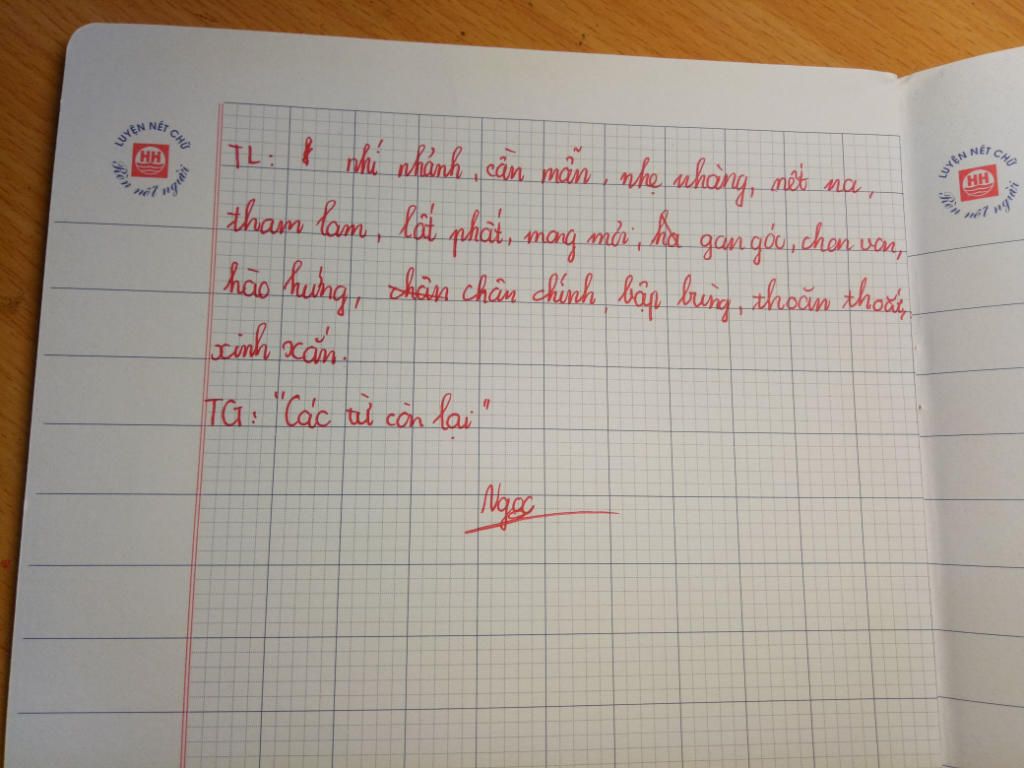 LUYỆN NÉT CHỮ
HH
Rèn nết người
TL: nhí nhảnh, cần mẫn, nhẹ nhàng, nết na,
tham lam, lất phất, mong mỏi, gan góc, chon von,
hào hứng, chân chính, bập bùng, thoăn thoắt,
xinh xắn.
TG: "Các từ còn lại"
Ngọc
LUYỆN NÉT CHỮ
HH
Rèn nết người